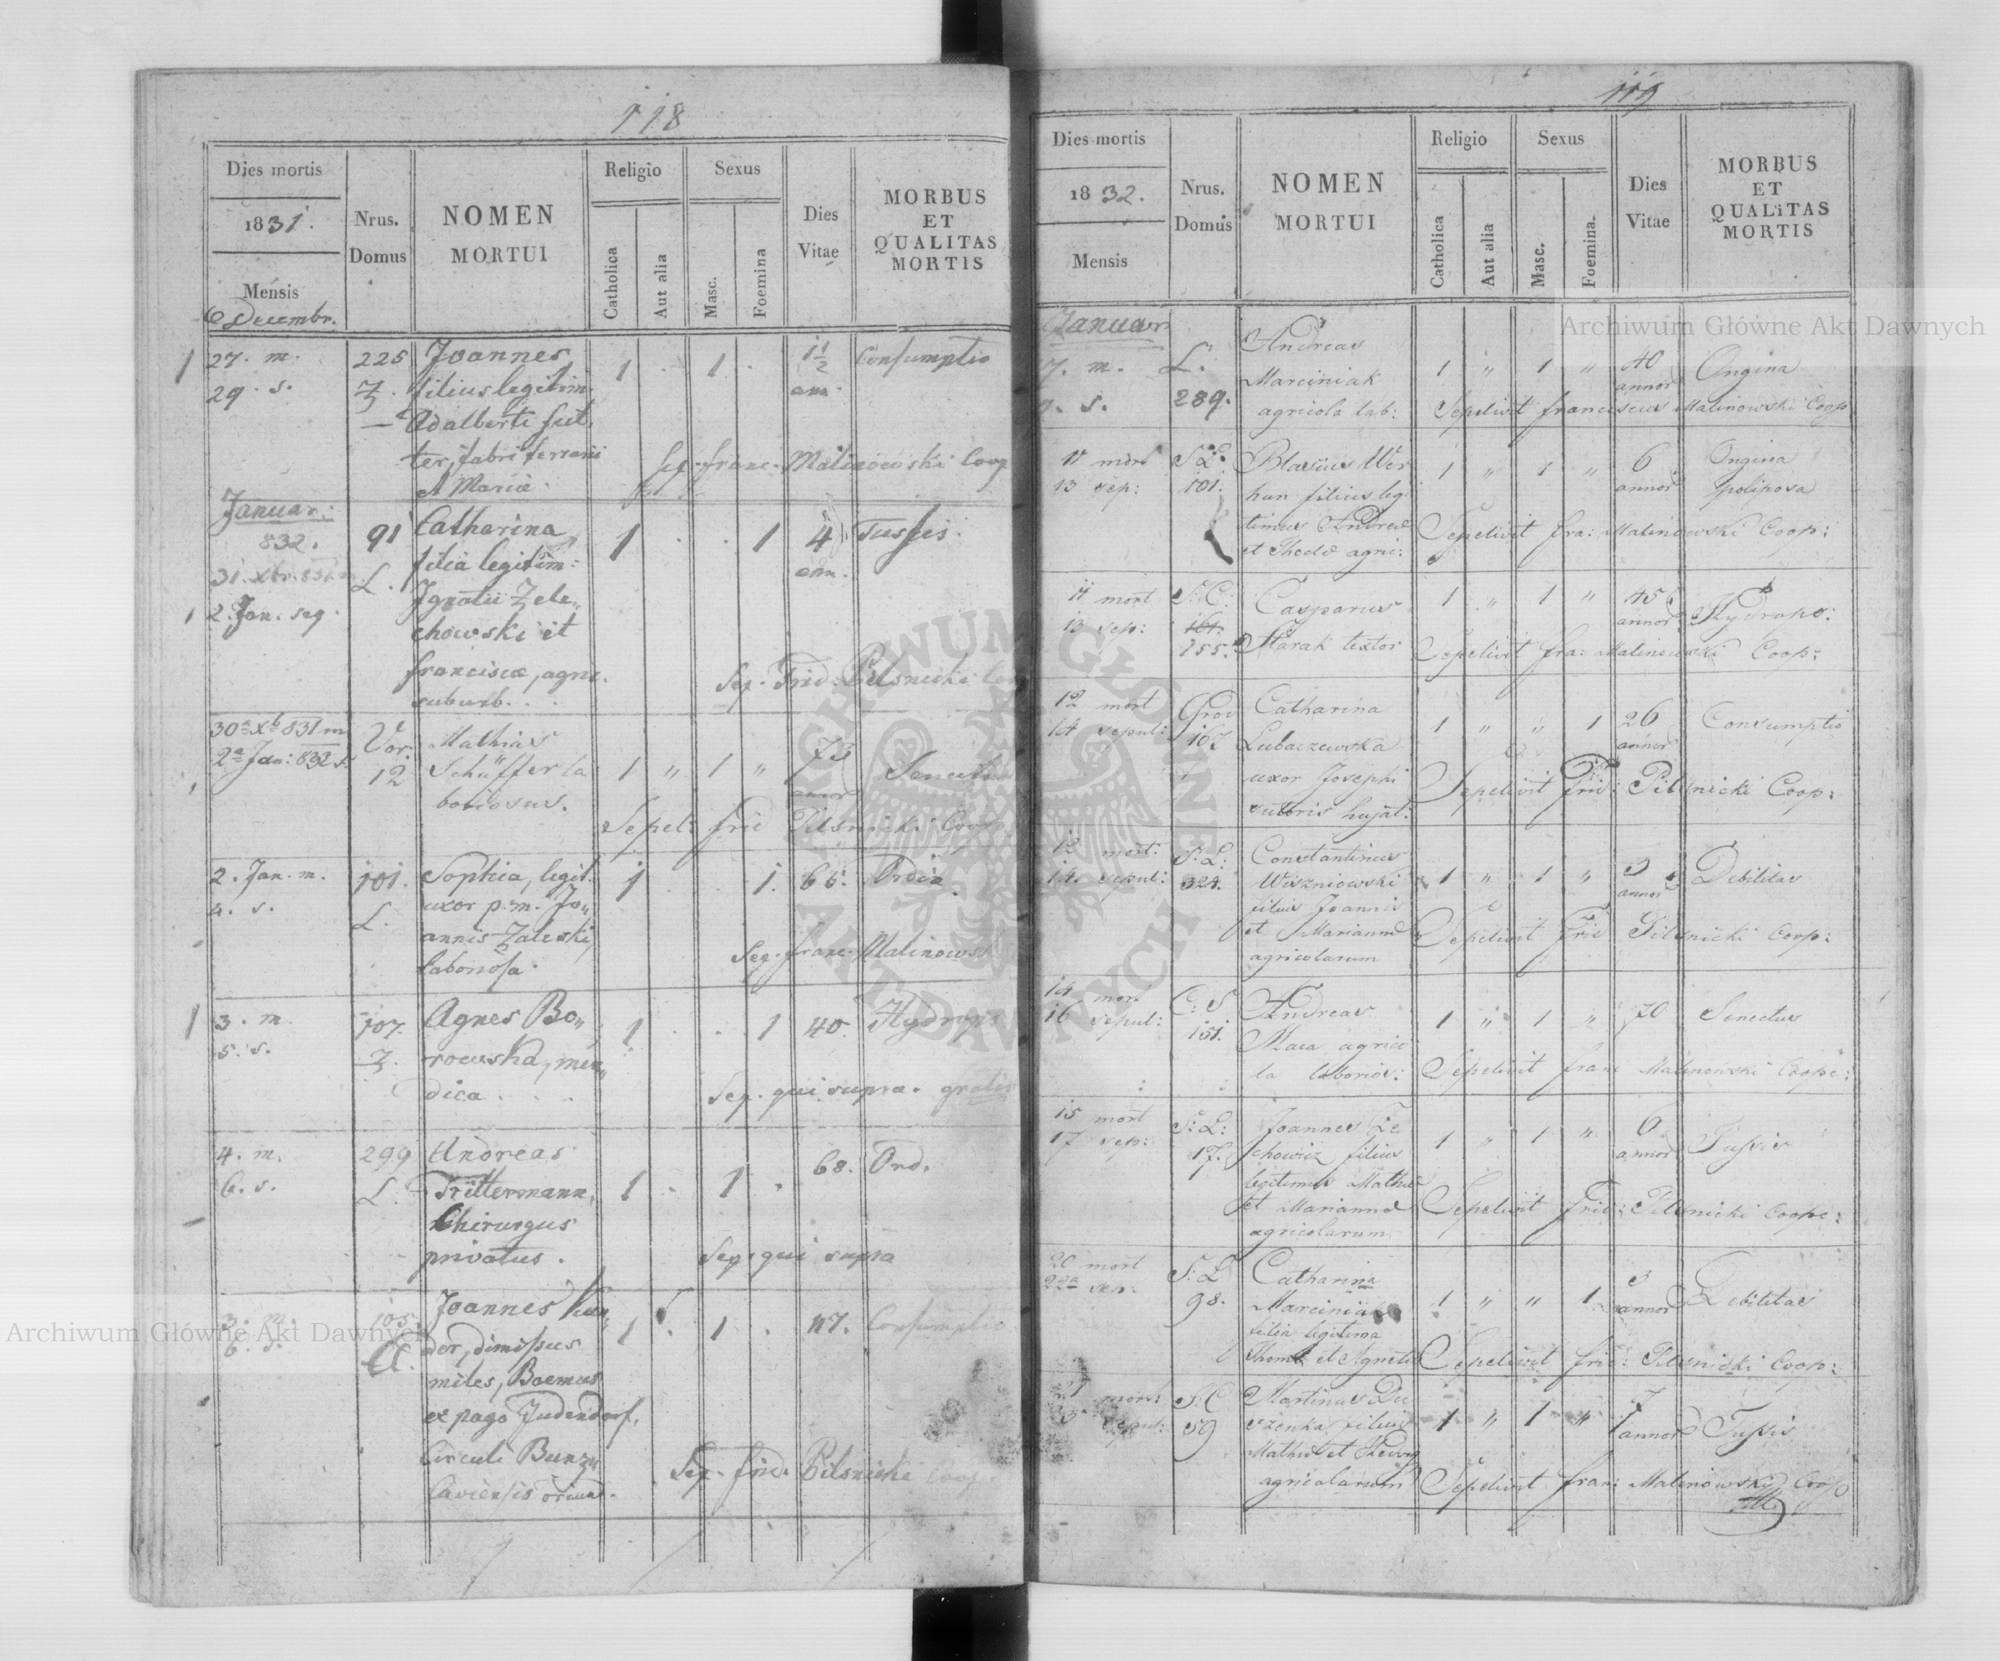 118
Dies mortis
1831.
Mensis
Decembr.
Nrus.
Domus
NOMEN
MORTUI
Religio
Catholica
Aut alia
Sexus
Masc.
Foemina
Dies
Vitae
MORBUS
ET
QUALITAS
MORTIS
27. m.
29. s.
225
Joannes
filius legitim.
Adalberti
fabri ferrarii
et Mariæ.
1 . 1 .
1 1/2
Consumptio
Sep. Franc. Malinowski Coop
Januar:
832.
31. xbr. 831 m
2. Jan. sep.
91
L.
Catharina
filia legitim:
Ignatii Zele„
chowski et
Franciscæ, agric.
suburb. . .
1 . . 1
4
Tussis.
Sep. Frid. Pilsnicki
30a xb 831 m
2a Jan: 832 s.
Vor.
12
Mathias
Schüffer la
boriosus.
1 „ 1 „
73
annor
Sepel: Frid Pilsnicki Coop
2. Jan. m.
4. s.
101.
L.
Sophia, legit.
uxor p. m. Jo„
annis Zaleski,
laboriosa.
1 . . 1.
65.
Ordin.
Sep. Franc. Malinows
3. m.
5. s.
107.
Z.
Agnes Bo„
rowska, men„
dica . . .
1 . . 1
40.
Hydrops
Sep. qui supra. gratis
4. m.
6. s.
299
L.
Andreas
Trittermann,
Chirurgus
privatus.
1 . 1 .
68.
Ord.
Sep. qui supra
3. m.
6. s.
105
Joannes
der, dimissus
miles, Boemus
ex pago Judendorf,
Circuli Bunz„
laviensis oriund.
1 . 1 .
47.
Consumptio
Sep. Frid. Pilsnicki Coop.
119
Dies mortis
1832.
Mensis
Nrus.
Domus
NOMEN
MORTUI
Religio
Catholica
Aut alia
Sexus
Masc.
Foemina.
Dies
Vitae
MORBUS
ET
QUALITAS
MORTIS
Januar.
7. m.
9. s.
L.
289.
Andreas
Marciniak
agricola lab:
1 „ 1 „
40
annor
Angina
Sepelivit Franciscus Malinowski Coop
11 mort
13 sep:
S. L:
101.
Blasius Wer
hun filius leg
timus Andreæ
et Theclæ agric:
1 „ 1 „
6
annor
Angina
poliposa
Sepelivit Fra: Malinowski Coop:
11 mort
13 sep:
S. C:
155.
Casparus
Marak textor
1 „ 1 „
45
annor
Hydrops:
Sepelivit Fra: Malinowski Coop:
12 mort
14 sepul:
Grod
107
Catharina
Lubaczewska
uxor Josephi
sutoris hujat:
1 „ „ 1
26
annor
Consumptio
Sepelivit Frid: Pilsnicki Coop:
12 mort:
14. sepul:
S: L:
324.
Constantinus
Wiszniowski
filius Joannis
et Mariannæ
agricolarum
1 „ 1 „
3
annor
Debilitas
Sepelivit Frid Pilsnicki Coop:
14 mor.
16 sepul:
C: S
151.
Andreas
Maca agrico
la laborios:
1 „ 1 „
70
Senectus
Sepelivit Franc Malinowski Coope:
15 mort
17 sep:
S: L:
17.
Joannes Ze
chowicz filius
legitimus Mathiæ
et Mariannæ
agricolarum
1 „ 1 „
6
annor
Tussis
Sepelivit Frid: Pilsnicki Coope:
20 mort
22a sep:
S: L
98.
Catharina
Marciniak
filia legitima
Thomæ et Agnetis
1 „ „ 1
3
annor
Debilitas
Sepelivit Frid: Pilsnicki Coop:
S: C
59
Martinus Du
szenka filius
Mathiæ et Hedvig
agricolarum
1 „ 1 „
7
annor
Tussis
Sepelivit Fran: Malinowski Coop
Archiwum Główne Akt Dawnych
Archiwum Główne Akt Dawnych
ARCHIWUM GŁÓWNE AKT DAWNYCH